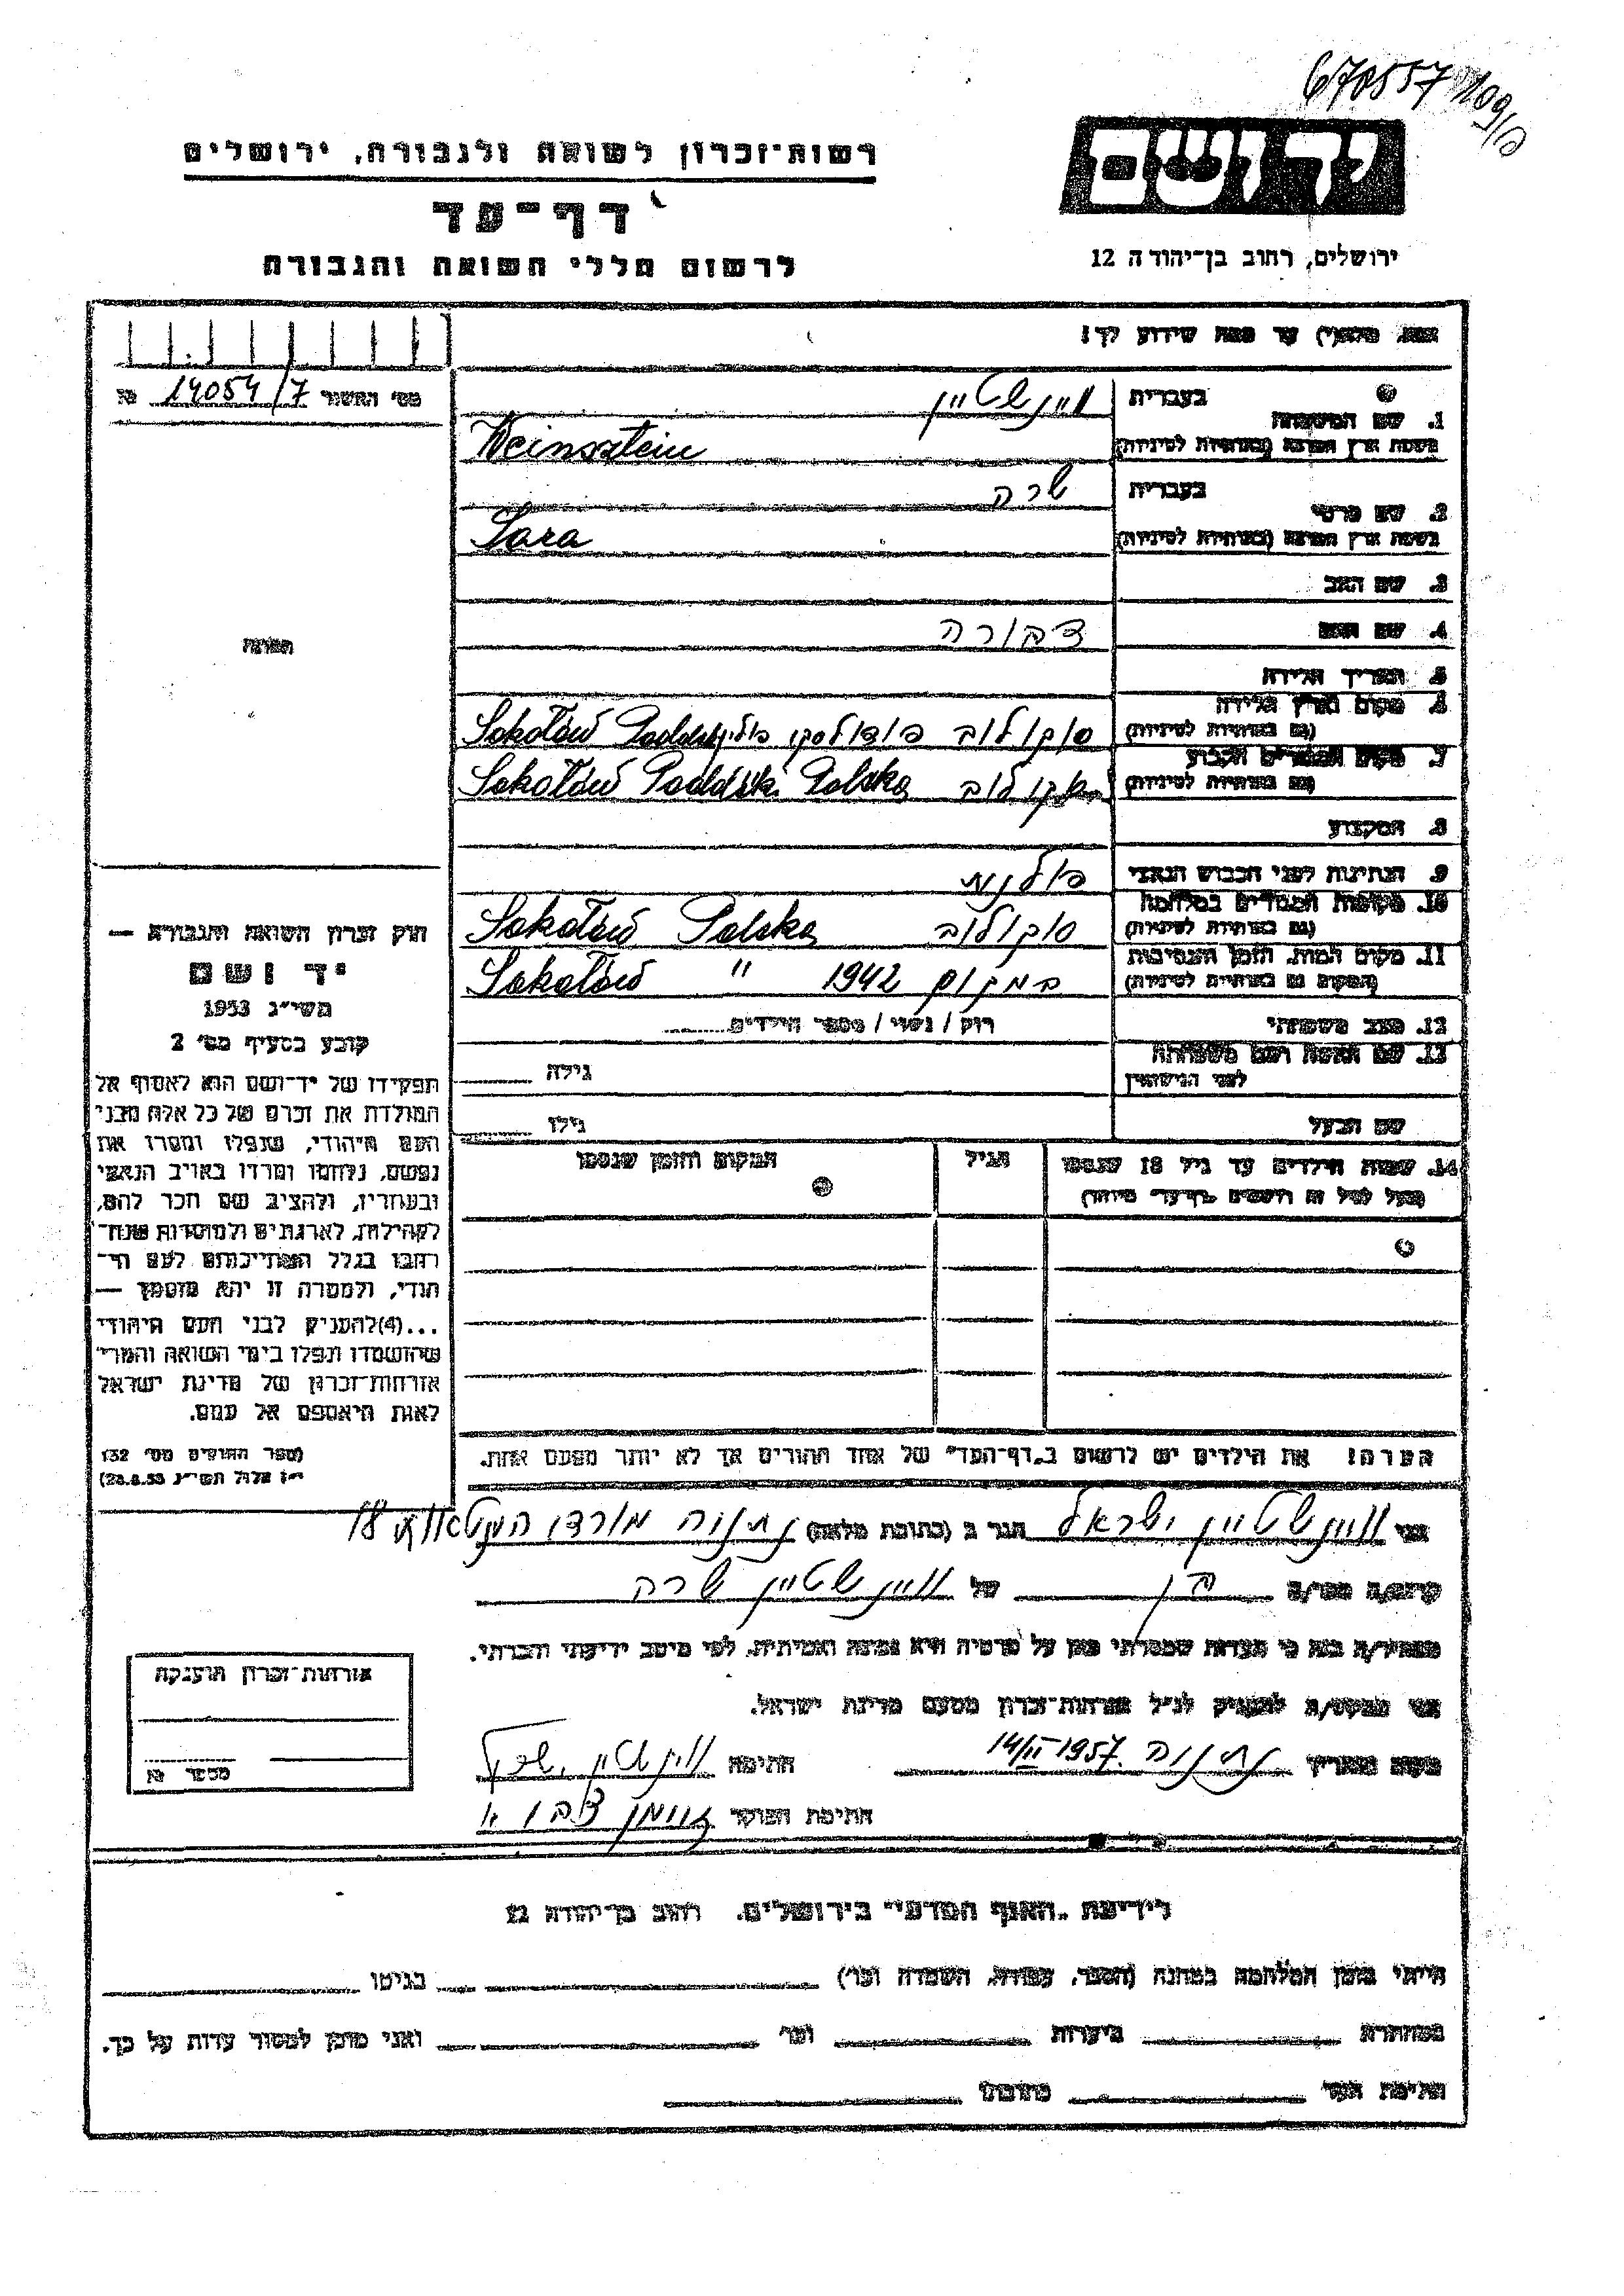 670557 109/10
יד ושם
רשות־זכרון לשואה ולגבורה, ירושלים
דף־עד
לרשום חללי השואה והגבורה
ירושלים, רחוב בן־יהודה 12
עד כמה שידוע לך!
מס׳ התשר 14054/7 №
1. שם המשפחה
בעברית ווינשטיין
בשפת ארץ המוצא (באותיות לטיניות) Weinsztein
2. שם פרטי
בעברית שרה
בשפת ארץ המוצא (באותיות לטיניות) Sara
3. שם האב
4. שם האם דבורה
5. תאריך הלידה
6. מקום וארץ הלידה
(גם באותיות לטיניות) סוקולוב פודולסקי Sokołów
7. מקום המגורים הקבוע
(גם באותיות לטיניות) סוקולוב Sokołów Podolski Polska
8. המקצוע
9. הנתינות לפני הכבוש הנאצי פולנית
10. מקומות המגורים במלחמה
(גם באותיות לטיניות) סוקולוב Sokołów Polska
11. מקום המות, הזמן והנסיבות
(המקום גם באותיות לטיניות) במקום 1942 " Sokołów
12. מצב משפחתי רוק / נשוי / מספר הילדים
13. שם האשה ושם משפחתה
לפני הנישואין גילה
שם הבעל גילו
14. שמות הילדים עד גיל 18 שנספו הגיל המקום והזמן שנספו
הערה! את הילדים יש לרשום ב„דף־העד" של אחד ההורים אך לא יותר מפעם אחת.
התמונה
חוק זכרון השואה והגבורה —
יד ושם
תשי״ג 1953
קובע בסעיף מס׳ 2
תפקידו של יד־ושם הוא לאסוף אל
המולדת את זכרם של כל אלה מבני
העם היהודי, שנפלו ומסרו את
נפשם, נלחמו ומרדו באויב הנאצי
ובעוזריו, ולהציב שם וזכר להם,
לקהילות, לארגונים ולמוסדות שנח־
רבו בגלל השתייכותם לעם הי־
הודי, ולמטרה זו יהא מוסמך —
...(4) להעניק לבני העם היהודי
שהושמדו ונפלו בימי השואה והמרי
אזרחות־זכרון של מדינת ישראל
לאות היאספם אל עמם.
(ספר החוקים מס׳ 132
י״ז אלול תשי״ג 28.8.53)
אני ווינשטיין ישראל הגר ב (כתובת מלאה) נתניה מורדי הגטאות 18
קרוב/ה בן של ווינשטיין שרה
מצהיר/ה בזה כי העדות שמסרתי כאן על פרטיה היא נכונה ואמיתית, לפי מיטב ידיעתי והכרתי.
אני מבקש/ת להעניק לנ״ל אזרחות־זכרון מטעם מדינת ישראל.
מקום ותאריך נתניה 14/II 1957 חתימה ווינשטיין ישראל
חתימת הפוקד
אזרחות־זכרון הוענקה
מספר №
לידיעת „האגף המדעי" בירושלים, רחוב בן־יהודה 12
הייתי בזמן המלחמה במחנה (הסגר, עבודה, השמדה וכו׳) בגיטו
במחתרת ביערות וכו׳ ואני מוכן למסור עדות על כך.
חתימת העד כתובתו